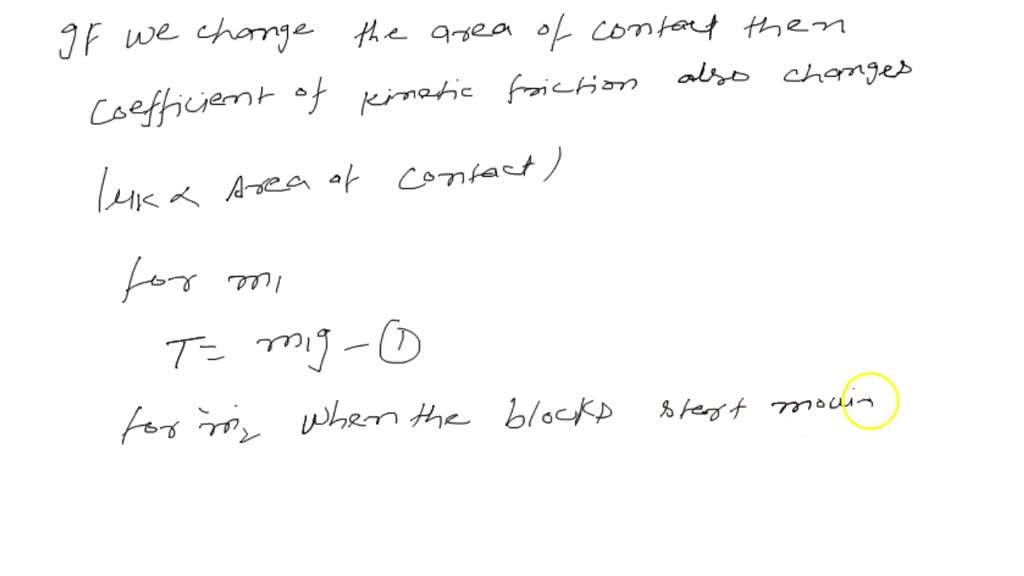 gF we change the area of contact then
coefficient of kinetic friction also changes
(μK ∝ Area of contact)
for m1
T = m1g - ①
for m2 when the blocks start movin